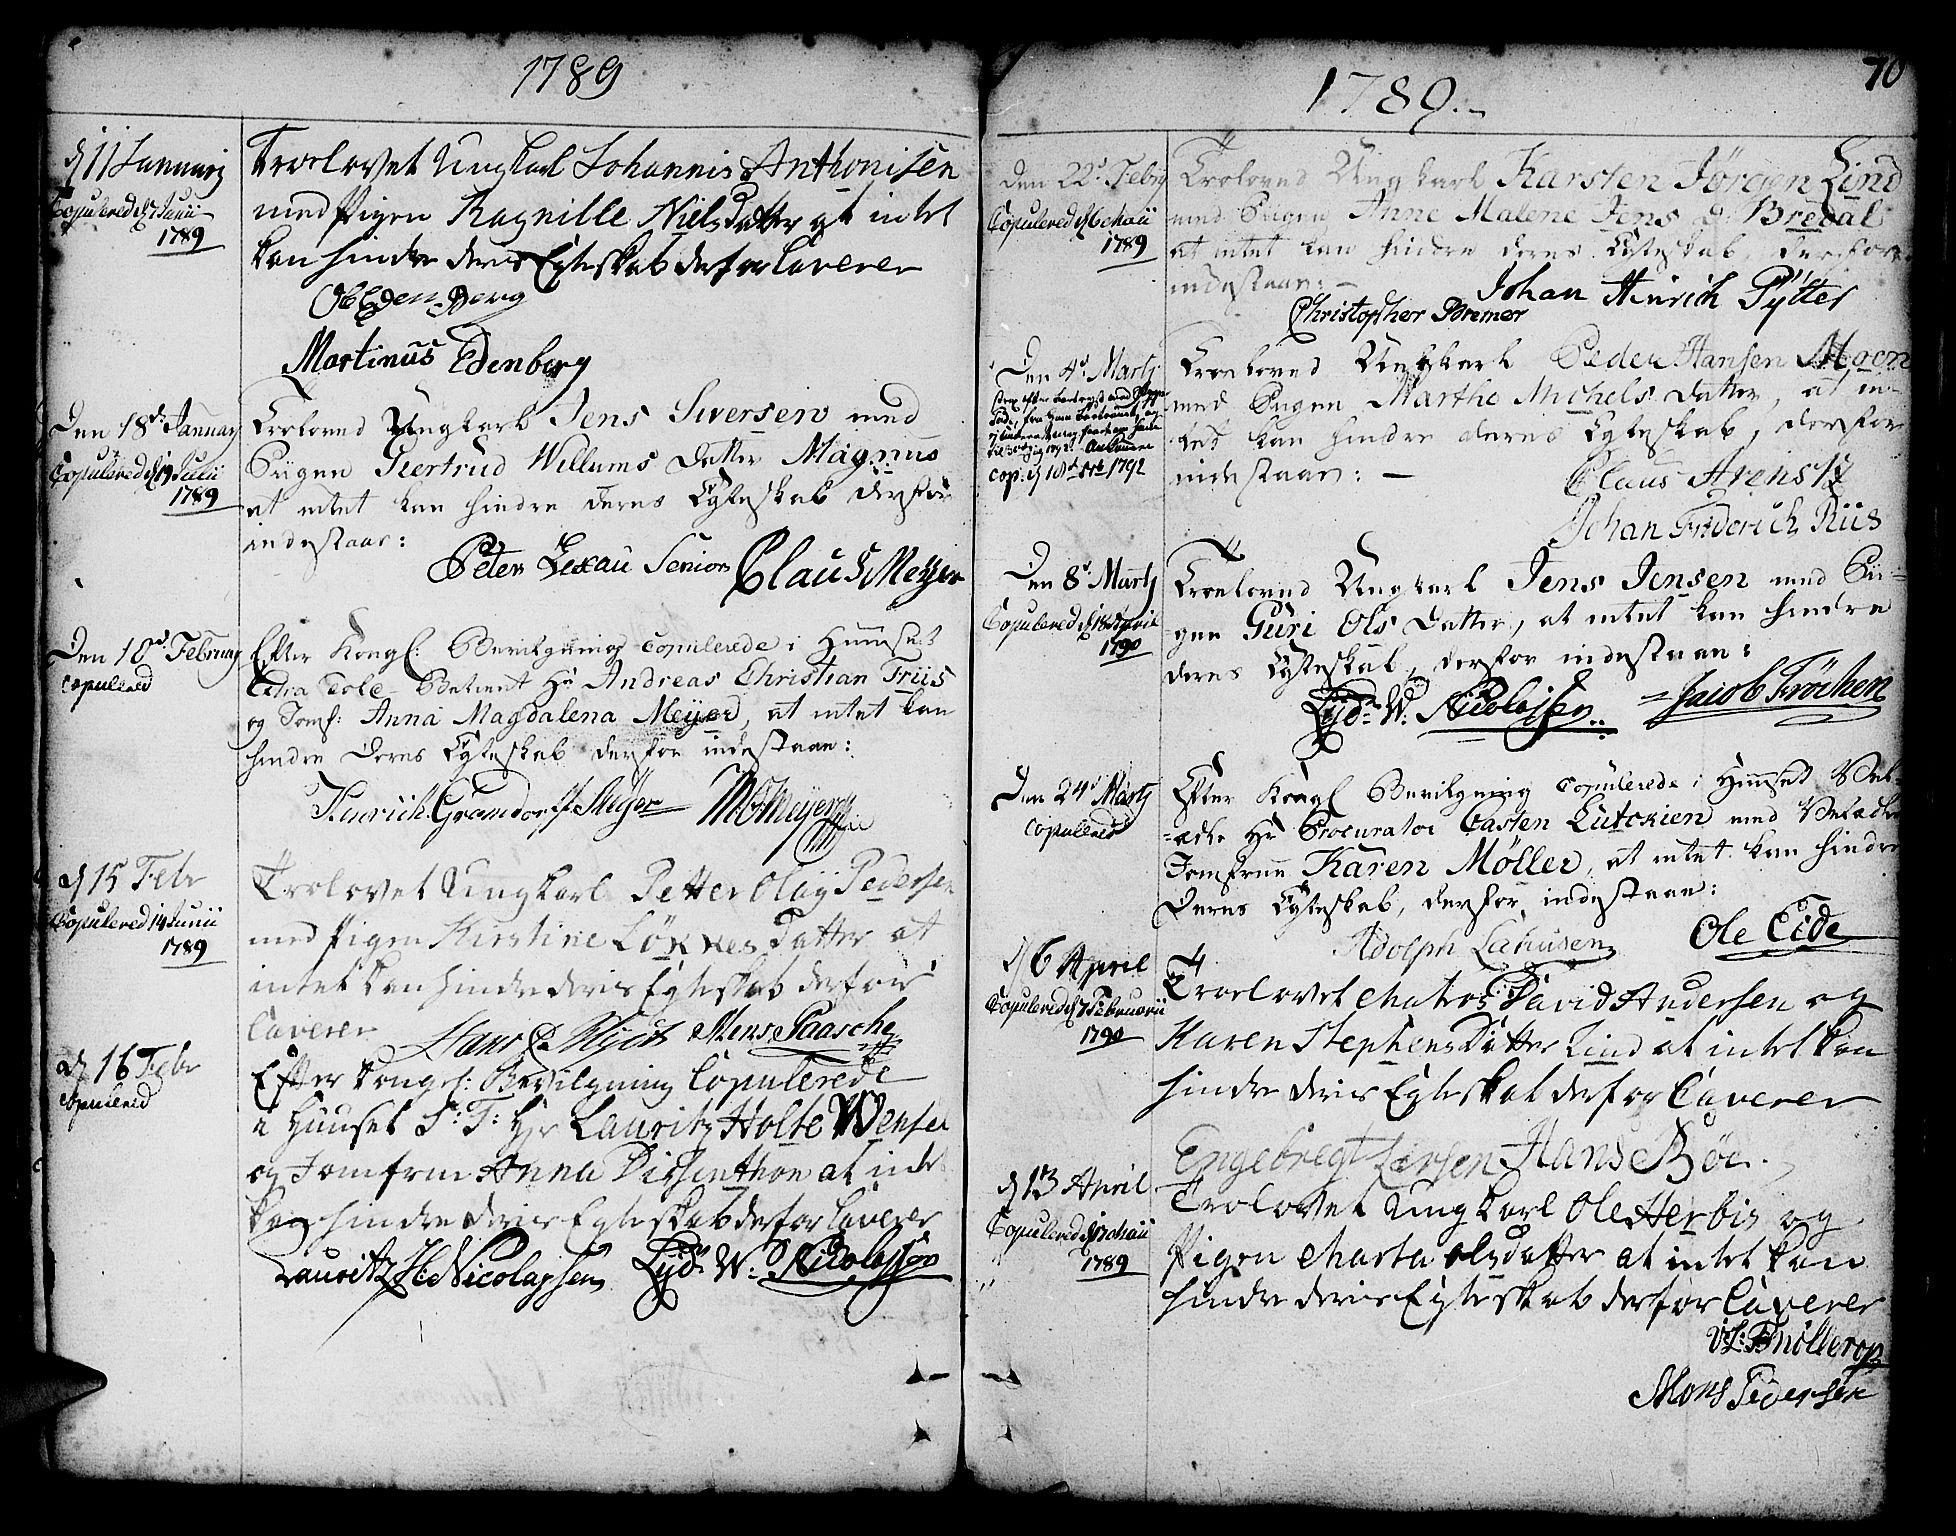 1789
d 11 January
Copulered d 7 Junii
1789
Troelovet Ungkarl Johannis Anthonisen
med Pigen Ragnille Niels Datter at intet
kan hindre deris Egteskab derfor Caverer
Ob Edenberg
Martinus Edenberg
Den 18de January
Copulered d 19 Julii
1789
Troloved Ungkarl Jens Siversen med
Piigen Giertrud Willums Datter Magnus
at intet kan hindre deres Egteskab derfor
indestaar:
Peter Lexau Senior Claus Meyer
Den 10de February
copulered
Efter Kongl: Bevilgning copulerede i Huuset
Extra Told-Betient Hr Andreas Christian Friis
og Jomf: Anna Magdalena Meyer, at intet kan
hindre deres Egteskab derfor indestaar:
Hinrich Gramdorff Meyer M Meyer
d 15 Febr
Copulered 14 Junii
1789
Trolovet Ungkarl Petter Oluij Pedersen
med Pigen Kirstine Løkkes Datter at
intet kan hindre deris Egteskab derfor
Caverer
Hans C Mens Paasche
d 16 Febr
Copulered
Efter Kongel: Bevilgning Copulerede
i Huuset S: T: Hr Lauritz Holte Wensel
og Jomfrue Anna Dirsenthon at intet
kan hindre deris Egteskab derfor Caverer
Lauritz He Nicolaysen Lyd: W: Nicolaysen
1789.
70
Den 22d Febry
Copulered d 6 Maii
1789
Troloved Ungkarl Karsten Jørgen Lind
med Pigen Anne Malene Jens D: Bredal
at intet kan hindre deres Egteskab, derfor
indestaar:
Johan Hinrich Pytter
Christopher Bremer
Den 4d Marty
cop. d 18d 1792
Troeloved Ungkarl Peder Hansen Moen
med Pigen Marthe Michels Datter, at in-
tet kan hindre deres Egteskab, derfor
indestaar:
Claus Arenstz
Johan Friderich Riis
Den 8d Marty
Copulered d 18 April
1790
Troeloved Ungkarl Jens Jensen med Pii-
gen Guri Ols Datter, at intet kan hindre
deres Egteskab, derfor indestaar:
Lyd: W: Nicolaysen Jacob Fröchen
Den 24d Marty
Copulered
Efter Kongl Bevilgning copulerede i Huuset Vel-
ædle Hr Procurator Casten Lütckien med Velædle
Jomfrue Karen Møller, at intet kan hindre
Deres Egteskab, derfor indestaar:
Adolph Lahusen Ole Eide
d 6 April
Copulered d 7 Februarii
1790
Troelovet Matros David Andersen og
Karen Stephens Datter Lind at intet kan
hindre deris Egteskab derfor Caverer
Engebregt Larsen Hans Bøe.
d 13 April
Copulered d Maii
1789
Trolovet Ungkarl Ole Herbis og
Pigen Marta Olsdatter at intet kan
hindre deris Egteskab derfor Caverer
Mons Pedersen